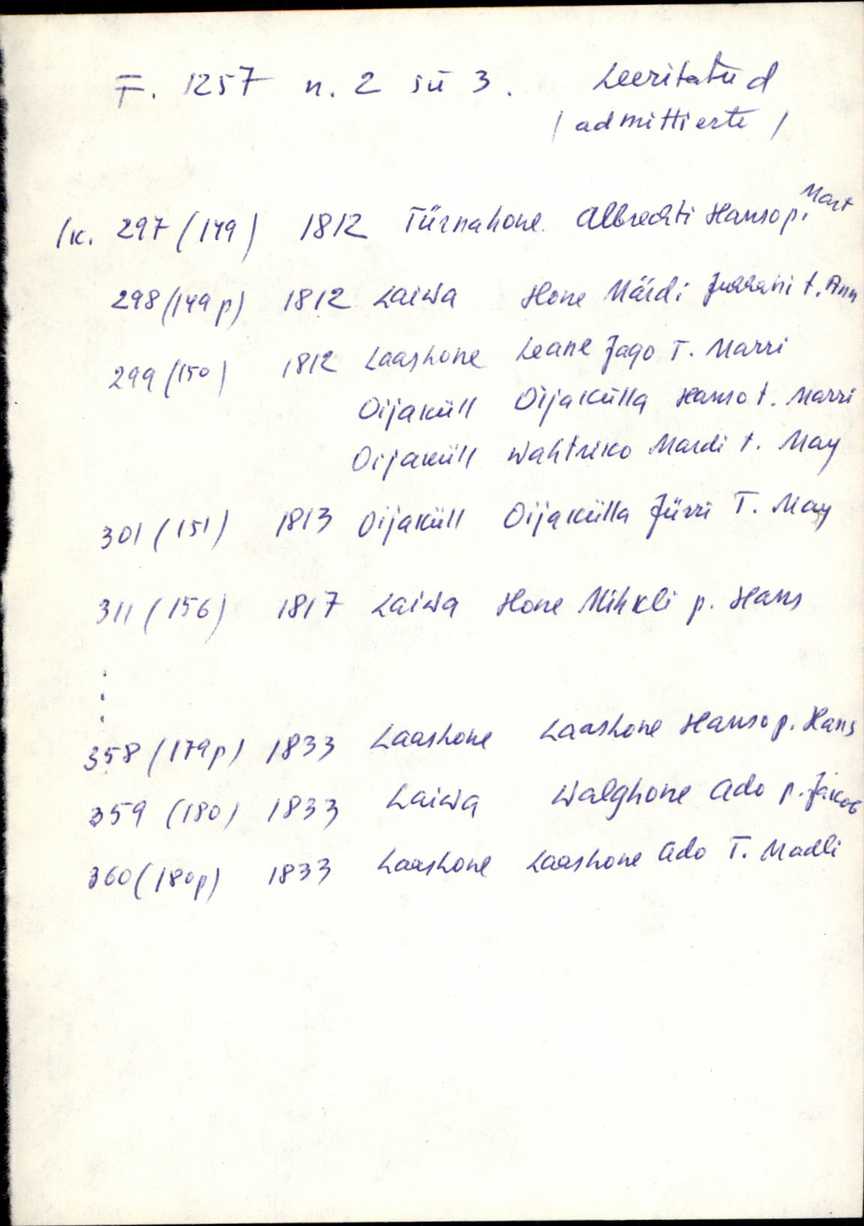 F. 1257 n. 2 sü 3. Leeritatud
/ admittierte /
lk. 297 (149) 1812 Türnahone. Albrechti Hanso p. Mart
298 (149 p) 1812 Laiwa Hone Märdi t. Ann
299 (150) 1812 Laashone Leane Jago T. Marri
Oijaküll Oijakülla Hanso t. Marri
Oijaküll Wahtriko Mardi t. May
301 (151) 1813 Oijaküll Oijakülla Jürri T. May
311 (156) 1817 Laiwa Hone Mihkli p. Hans
358 (179p) 1833 Laashone Laashone Hanso p. Hans
359 (180) 1833 Laiwa Walghone Ado p. Jakob
360 (180p) 1833 Laashone Laashone Ado T. Madli